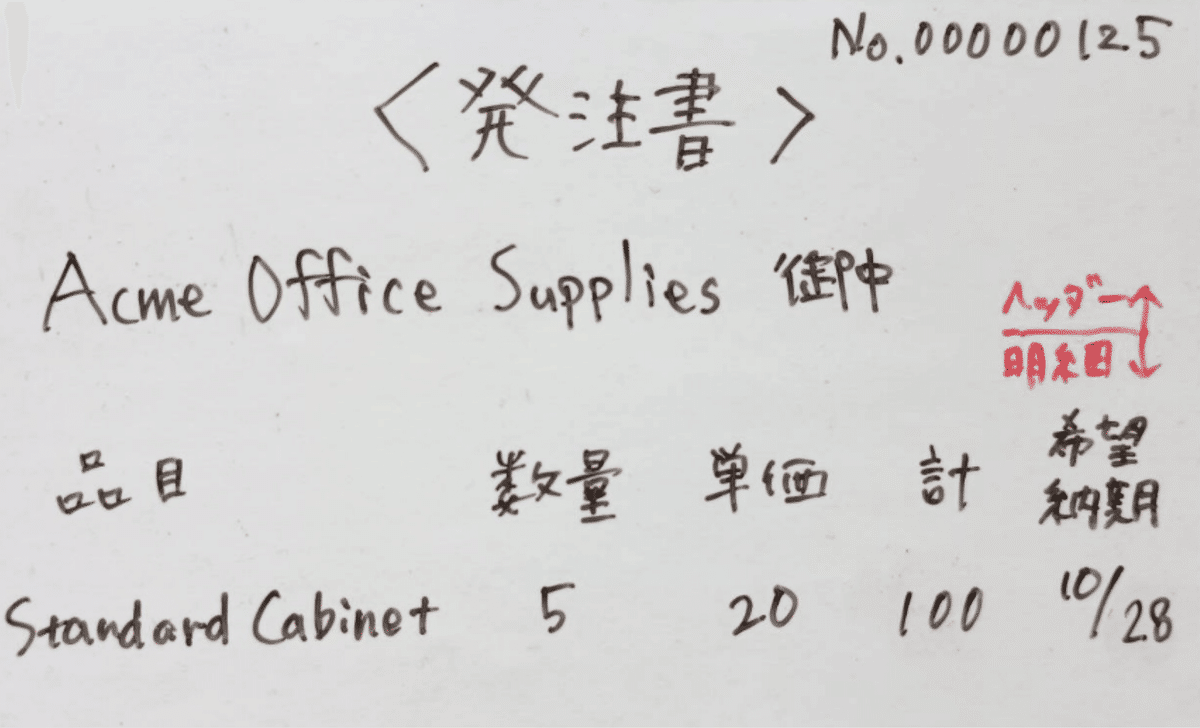 No.00000125
〈発注書〉
Acme Office Supplies 御中
ヘッダー
明細
品目 数量 単価 計 希望
納期
Standard Cabinet 5 20 100 10/28